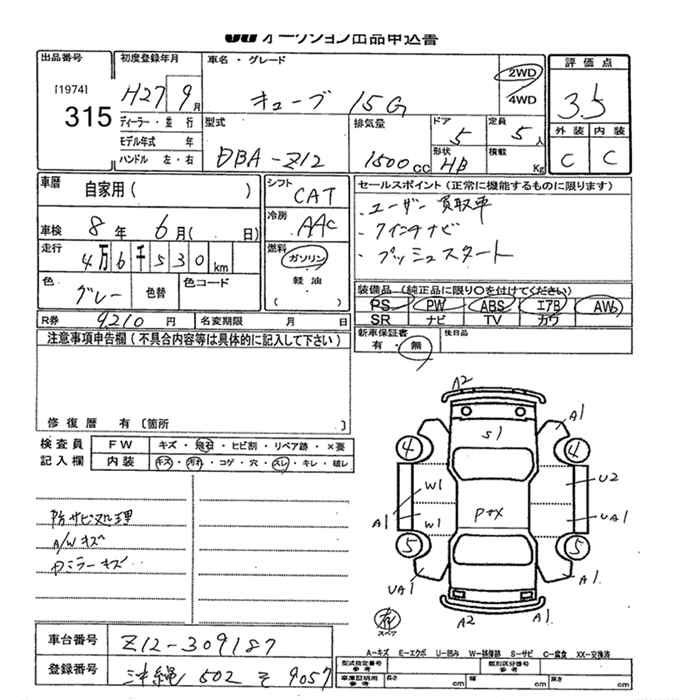 JU オークション出品申込書
出品番号 初度登録年月 車名・グレード 評価点
[1974] 315
H27 9月 キューブ 15G 2WD 4WD 3.5
ディーラー・並行 型式 排気量 ドア 5 定員 5人 外装 内装
モデル年式 年
ハンドル 左・右 DBA-Z12 1500cc 形状 HB 積載 Kg C C
車歴 自家用( ) シフト CAT セールスポイント(正常に機能するものに限ります)
車検 8年 6月( 日) 冷房 AAC ・ユーザー買取車
走行 4万6千530km 燃料 ガソリン ・7インチナビ
色 グレー 色替 色コード 軽油 ( ) ・プッシュスタート
装備品(純正品に限り○を付けてください)
PS PW ABS エアB AW
SR ナビ TV カワ
R券 9210円 名変期限 月 日 新車保証書 有・無 後日品
注意事項申告欄(不具合内容等は具体的に記入して下さい)
修復歴 有〔箇所 〕
検査員 FW キズ・飛石・ヒビ割・リペア跡・×要
記入欄 内装 キズ・汚れ・コゲ・穴・スレ・キレ・破レ
防サビ処理
A/Wキズ
Dミラーキズ
A2
A1
S1
4 4
W1 U2
Ptx
A1 W1 UA1
5 5
UA1 A1
A2 A1
有 スペア
車台番号 Z12-309187
登録番号 沖縄 502 そ 9057
A-キズ E-エクボ U-凹み W-補修跡 S-サビ C-腐食 XX-交換済
型式指定番号 参考 類別区分番号 参考
車庫証明用 参考 長さ cm 幅 cm 高さ cm